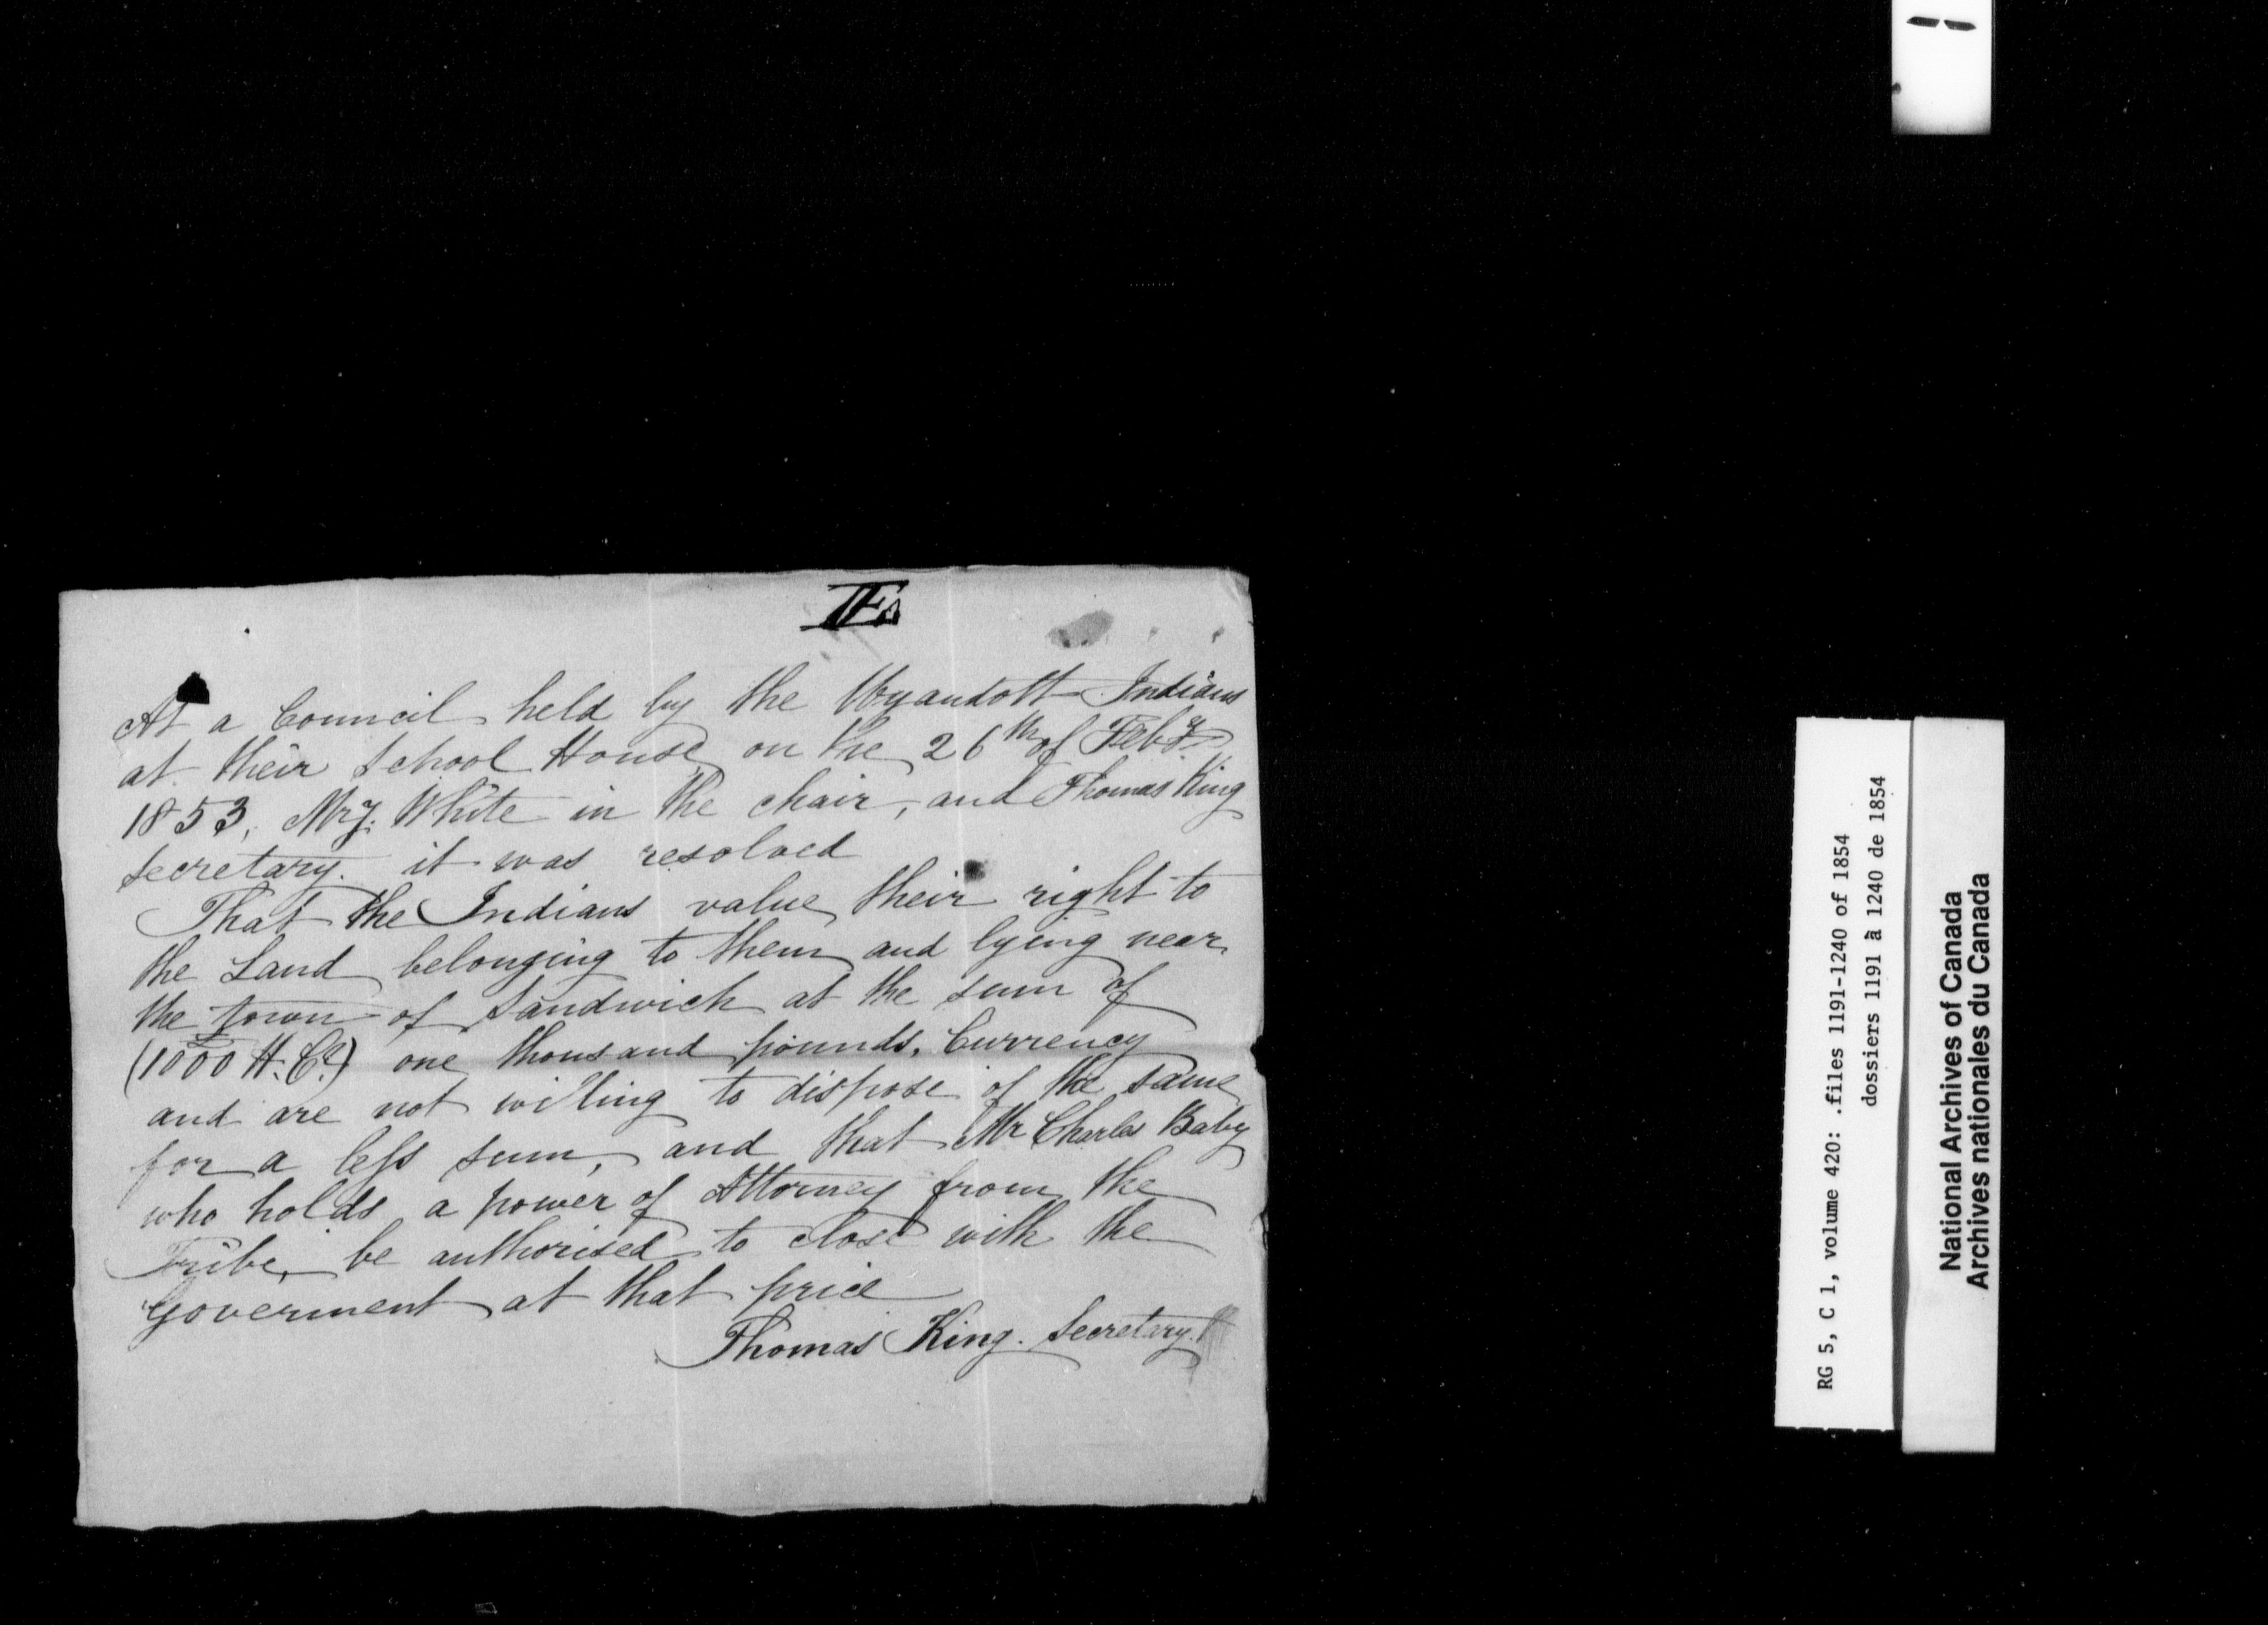 At a Council held by the Wyandott Indians
at their School House on the 26th of Feby
1853, Mr J. White in the chair, and Thomas King
Secretary. it was resolved
That the Indians value their right to
the Land belonging to them and lying near
the town of Sandwich at the sum of
(1000 H. Cy) one thousand pounds. Currency
and are not willing to dispose of the same
for a less sum, and that Mr Charles Baby
who holds a power of Attorney from the
Tribe, be authorised to close with the
Goverment at that price
Thomas King. Secretary.
RG 5, C 1, volume 420: .files 1191-1240 of 1854
dossiers 1191 à 1240 de 1854
National Archives of Canada
Archives nationales du Canada